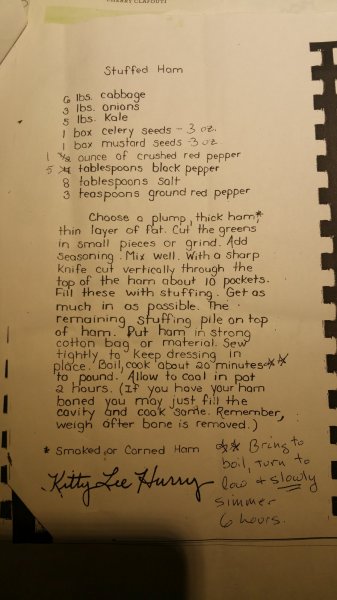 CHERRY CLAFOUTI
Stuffed Ham
6 lbs. cabbage
3 lbs. onions
5 lbs. Kale
1 box celery seeds - 3 oz.
1 box mustard seeds - 3 oz
1 1/2 ounce of crushed red pepper
5 tablespoons black pepper
8 tablespoons salt
3 teaspoons ground red pepper
Choose a plump, thick ham,*
thin layer of fat. Cut the greens
in small pieces or grind. Add
seasoning. Mix well. With a sharp
knife cut vertically through the
top of the ham about 10 pockets.
Fill these with stuffing. Get as
much in as possible. The
remaining stuffing pile on top
of ham. Put ham in strong
cotton bag or material. Sew
tightly to keep dressing in
place. Boil, cook about 20 minutes **
to pound. Allow to cool in pot
2 hours. (If you have your ham
boned you may just fill the
cavity and cook same. Remember,
weigh after bone is removed.)
* Smoked or Corned Ham
** Bring to
boil, turn to
low + slowly
simmer
6 hours.
Kitty Lee Hurry